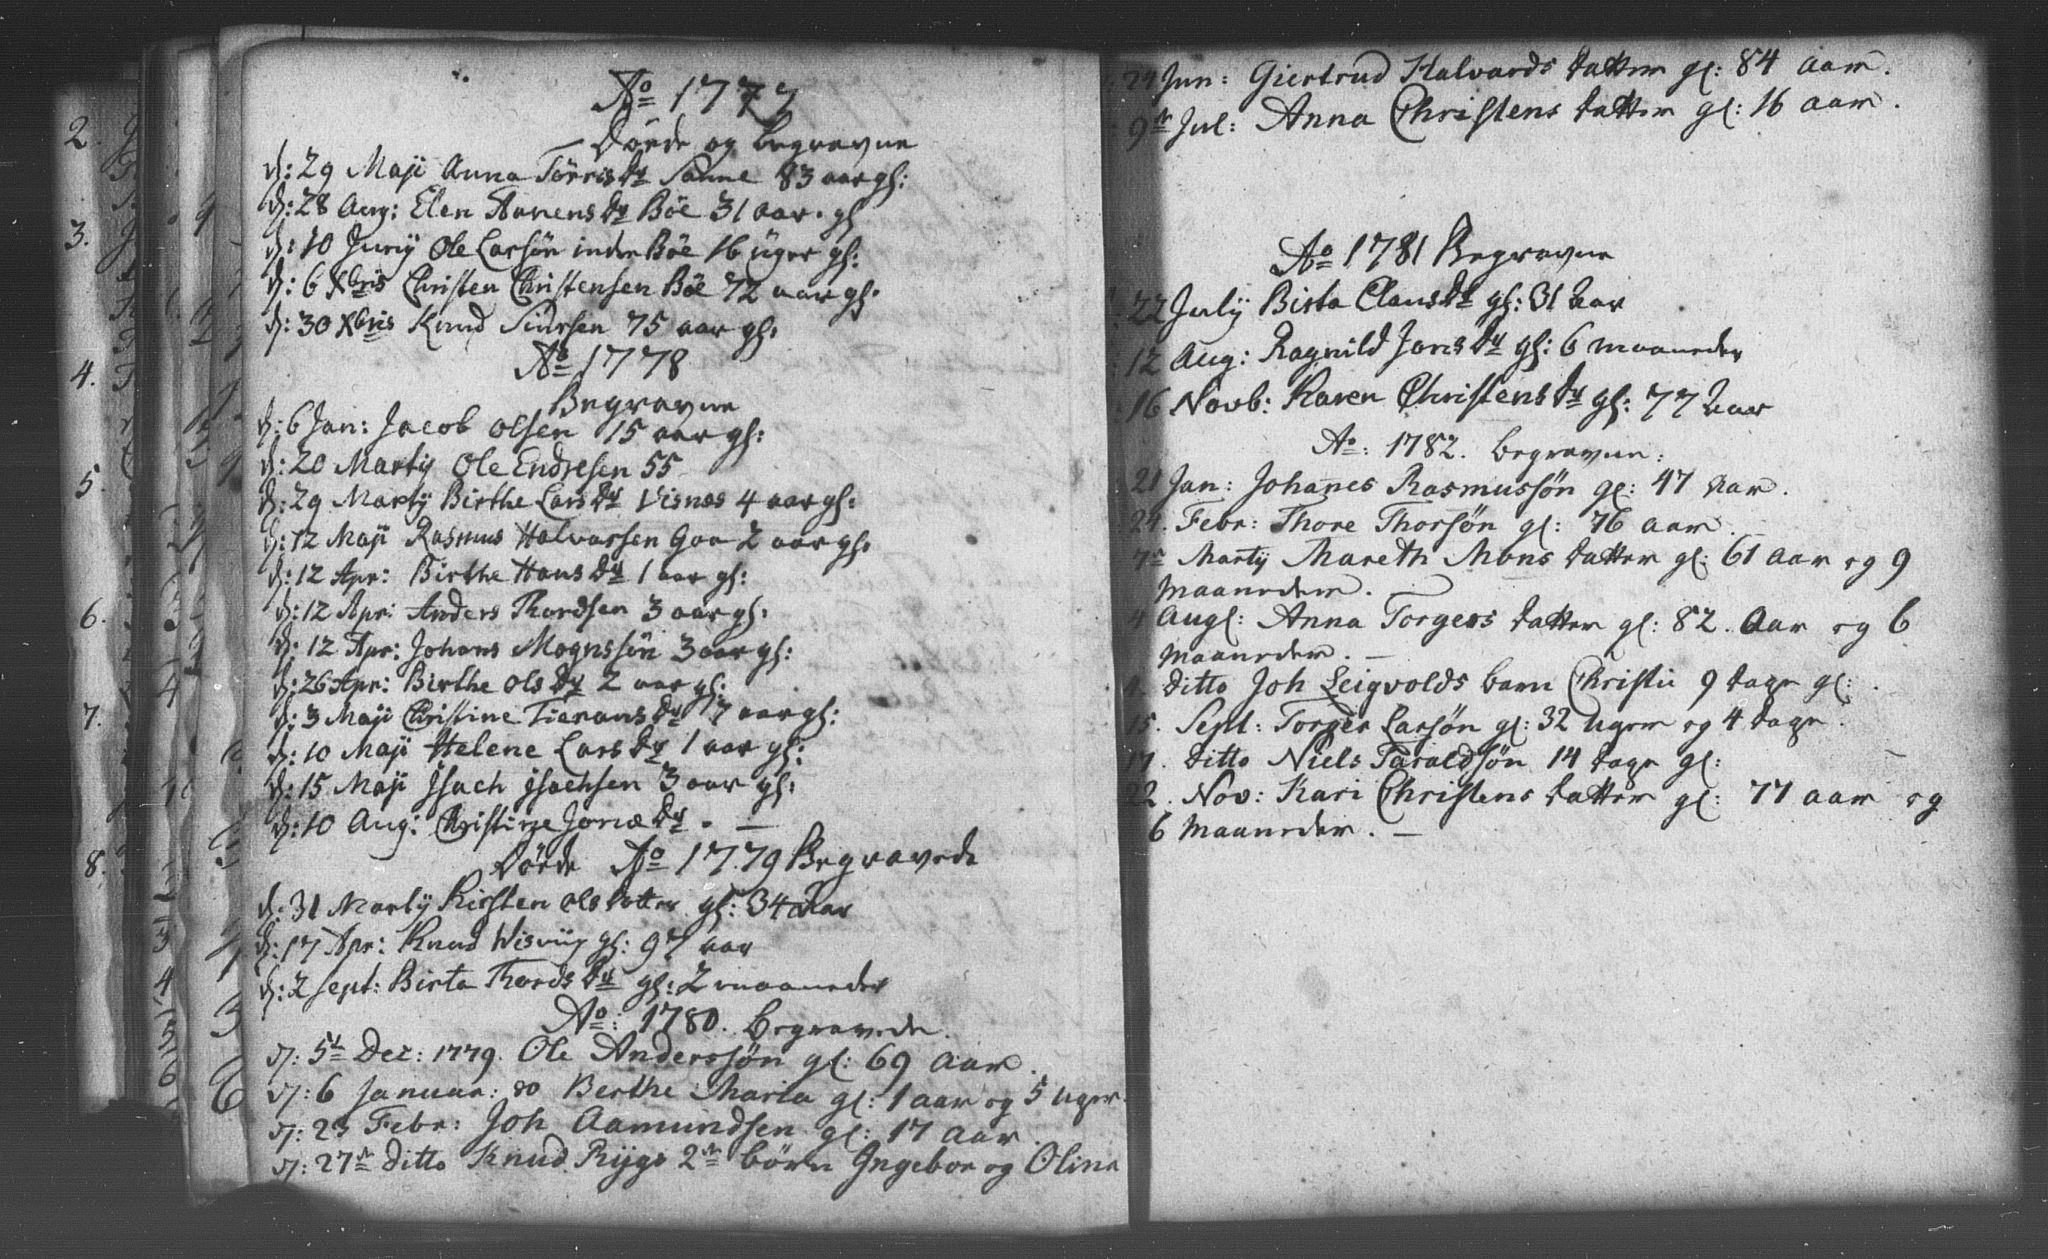 Ao 1777
Döede og Begravne
d: 29 Maji Anna Törrisdr Sanne 83 aar gl:
d: 28 Aug: Elen Hanensdr Böe 31 aar gl
d: 10 Junij Ole Larsön indre Böe 16 uger gl:
d: 6 Xbris Christen Christensen Böe 72 aar gl:
d: 30 Xbris Knud Siursen 75 aar gl:
Ao 1778
Begravne
d: 6 Jan: Jacob Olsen 15 aar gl:
d: 20 Martij Ole Endresen 55
d: 29 Martij Birthe Larsdr Visnæs 4 aar gl:
d: 12 Maji Rasmus Halvarsen Goa 2 aar gl:
d: 12 Apr: Birthe Hansdr 1 aar gl:
d: 12 Apr: Anders Thordsen 3 aar gl:
d: 12 Apr: Johans Mognssön 3 aar gl:
d: 26 Apr: Birthe Olsdr 2 aar gl:
d: 3 Maji Christine Tieransdr 7 aar gl:
d: 10 Maji Helene Larsdr 1 aar gl:
d: 15 Maji Isach Isachsen 3 aar gl:
d: 10 Aug: Christine Jonædr. —
Döede Ao 1779 Begravede
d: 31 Martij Kirsten Olsdotter gl: 34 Aar
d: 17 Apr: Knud Wisviig gl: 97 aar
d: 2 Sept: Birta Thordsdr gl: 2 maaneder
Ao: 1780. Begravede.
d: 5t Dec: 1779. Ole Anderssön gl: 69 Aar.
d: 6 Januar: 80 Berthe Maria gl: 1 aar og 5 uger.
d: 23 Febr: Joh Aamundsen gl: 17 Aar.
d: 27n Ditto Knud Rygs 2n börn Ingebor og Olina
24 Jun: Giertrud Halvards datter gl: 84 aar.
9n Jul: Anna Christens datter gl: 16 aar.
Ao 1781 Begravne
22 Julij Birta Clausdr gl: 31 Aar
12 Aug: Ragnild Jonsdr gl: 6 maaneder
16 Novb: Karen Christensdr gl: 77 Aar
Ao: 1782. Begravne:
21 Jan: Johanes Rasmussön gl: 47 Aar.
24. Febr: Thore Thorsön gl: 76 aar.
7n Martij Mareth Mons datter gl: 61 Aar og 9
Maaneder.
4 Augl: Anna Torgers datter gl: 82. Aar og 6
Maaneder. —
4. Ditto Joh Leigvolds barn Christie 9 dage gl:.
15. Sept: Torger Larsön gl: 32 uger og 4 dage.
17. Ditto Niels Taraldsön 14 dage gl:
22. Nov: Kari Christens datter gl: 77 aar og
6 Maaneder. —
2.
3.
4.
5.
6.
7.
8.